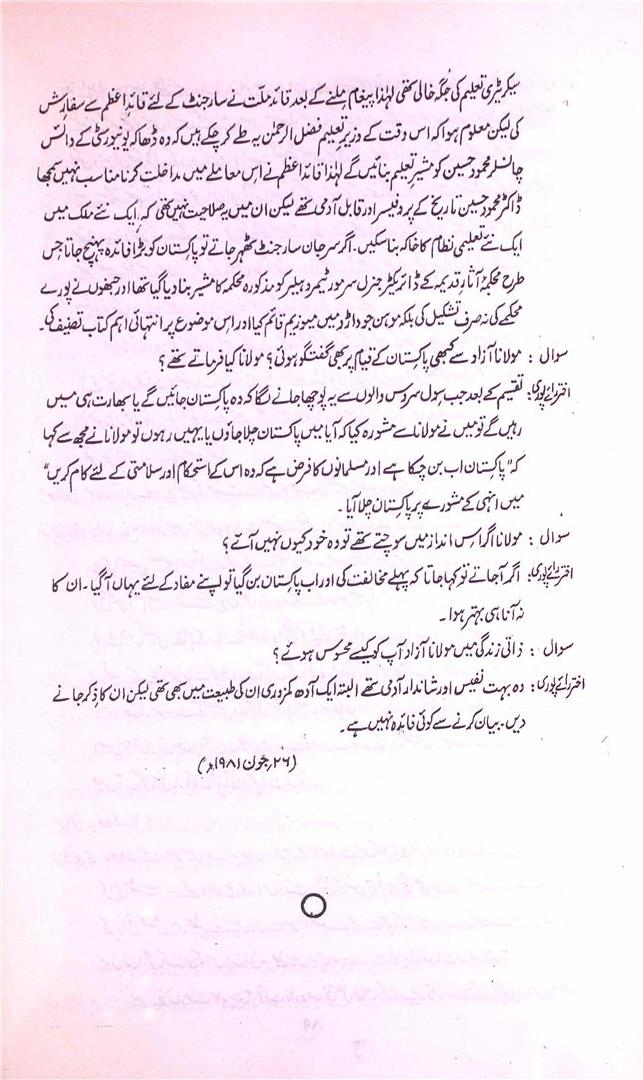 سیکریٹری تعلیم کی جگہ خالی تھی لہٰذا پیغام ملنے کے بعد قائد ملت نے سارجنٹ کے لئے قائد اعظم سے سفارش
کی لیکن معلوم ہوا کہ اس وقت کے وزیر تعلیم فضل الرحمٰن یہ طے کر چکے ہیں کہ وہ ڈھاکہ یونیورسٹی کے وائس
چانسلر محمود حسین کو مشیر تعلیم بنائیں گے لہٰذا قائد اعظم نے اس معاملے میں مداخلت کرنا مناسب نہیں سمجھا
ڈاکٹر محمود حسین تاریخ کے پروفیسر اور قابل آدمی تھے لیکن ان میں یہ صلاحیت نہیں تھی کہ ایک نئے ملک میں
ایک نئے تعلیمی نظام کا خاکہ بنا سکیں۔ اگر سر جان سارجنٹ ٹھہر جاتے تو پاکستان کو بڑا فائدہ پہنچ جاتا جس
طرح محکمۂ آثار قدیمہ کے ڈائریکٹر جنرل سر مورٹیمر وہیلر کو مذکورہ محکمہ کا مشیر بنا دیا گیا تھا اور جنھوں نے پورے
محکمے کی نہ صرف تشکیل کی بلکہ موہن جو داڑو میں میوزیم قائم کیا اور اس موضوع پر انتہائی اہم کتاب تصنیف کی۔
سوال : مولانا آزاد سے کبھی پاکستان کے قیام پر بھی گفتگو ہوئی؟ مولانا کیا فرماتے تھے؟
اختر رائے پوری: تقسیم کے بعد جب سول سروس والوں سے یہ پوچھا جانے لگا کہ وہ پاکستان جائیں گے یا بھارت ہی میں
رہیں گے تو میں نے مولانا سے مشورہ کیا کہ آیا میں پاکستان چلا جاؤں یا یہیں رہوں تو مولانا نے مجھ سے کہا
کہ "پاکستان اب بن چکا ہے اور مسلمانوں کا فرض ہے کہ وہ اس کے استحکام اور سلامتی کے لئے کام کریں"
میں انہی کے مشورے پر پاکستان چلا آیا۔
سوال : مولانا اگر اس انداز میں سوچتے تھے تو وہ خود کیوں نہیں آئے؟
اختر رائے پوری: اگر آ جاتے تو کہا جاتا کہ پہلے مخالفت کی اور اب پاکستان بن گیا تو اپنے مفاد کے لئے یہاں آ گیا۔ ان کا
نہ آنا ہی بہتر ہوا۔
سوال : ذاتی زندگی میں مولانا آزاد آپ کو کیسے محسوس ہوئے؟
اختر رائے پوری: وہ بہت نفیس اور شاندار آدمی تھے البتہ ایک آدھ کمزوری ان کی طبیعت میں بھی تھی لیکن ان کا ذکر جانے
دیں۔ بیان کرنے سے کوئی فائدہ نہیں ہے۔
(۲۶ جون ۱۹۸۱ء)